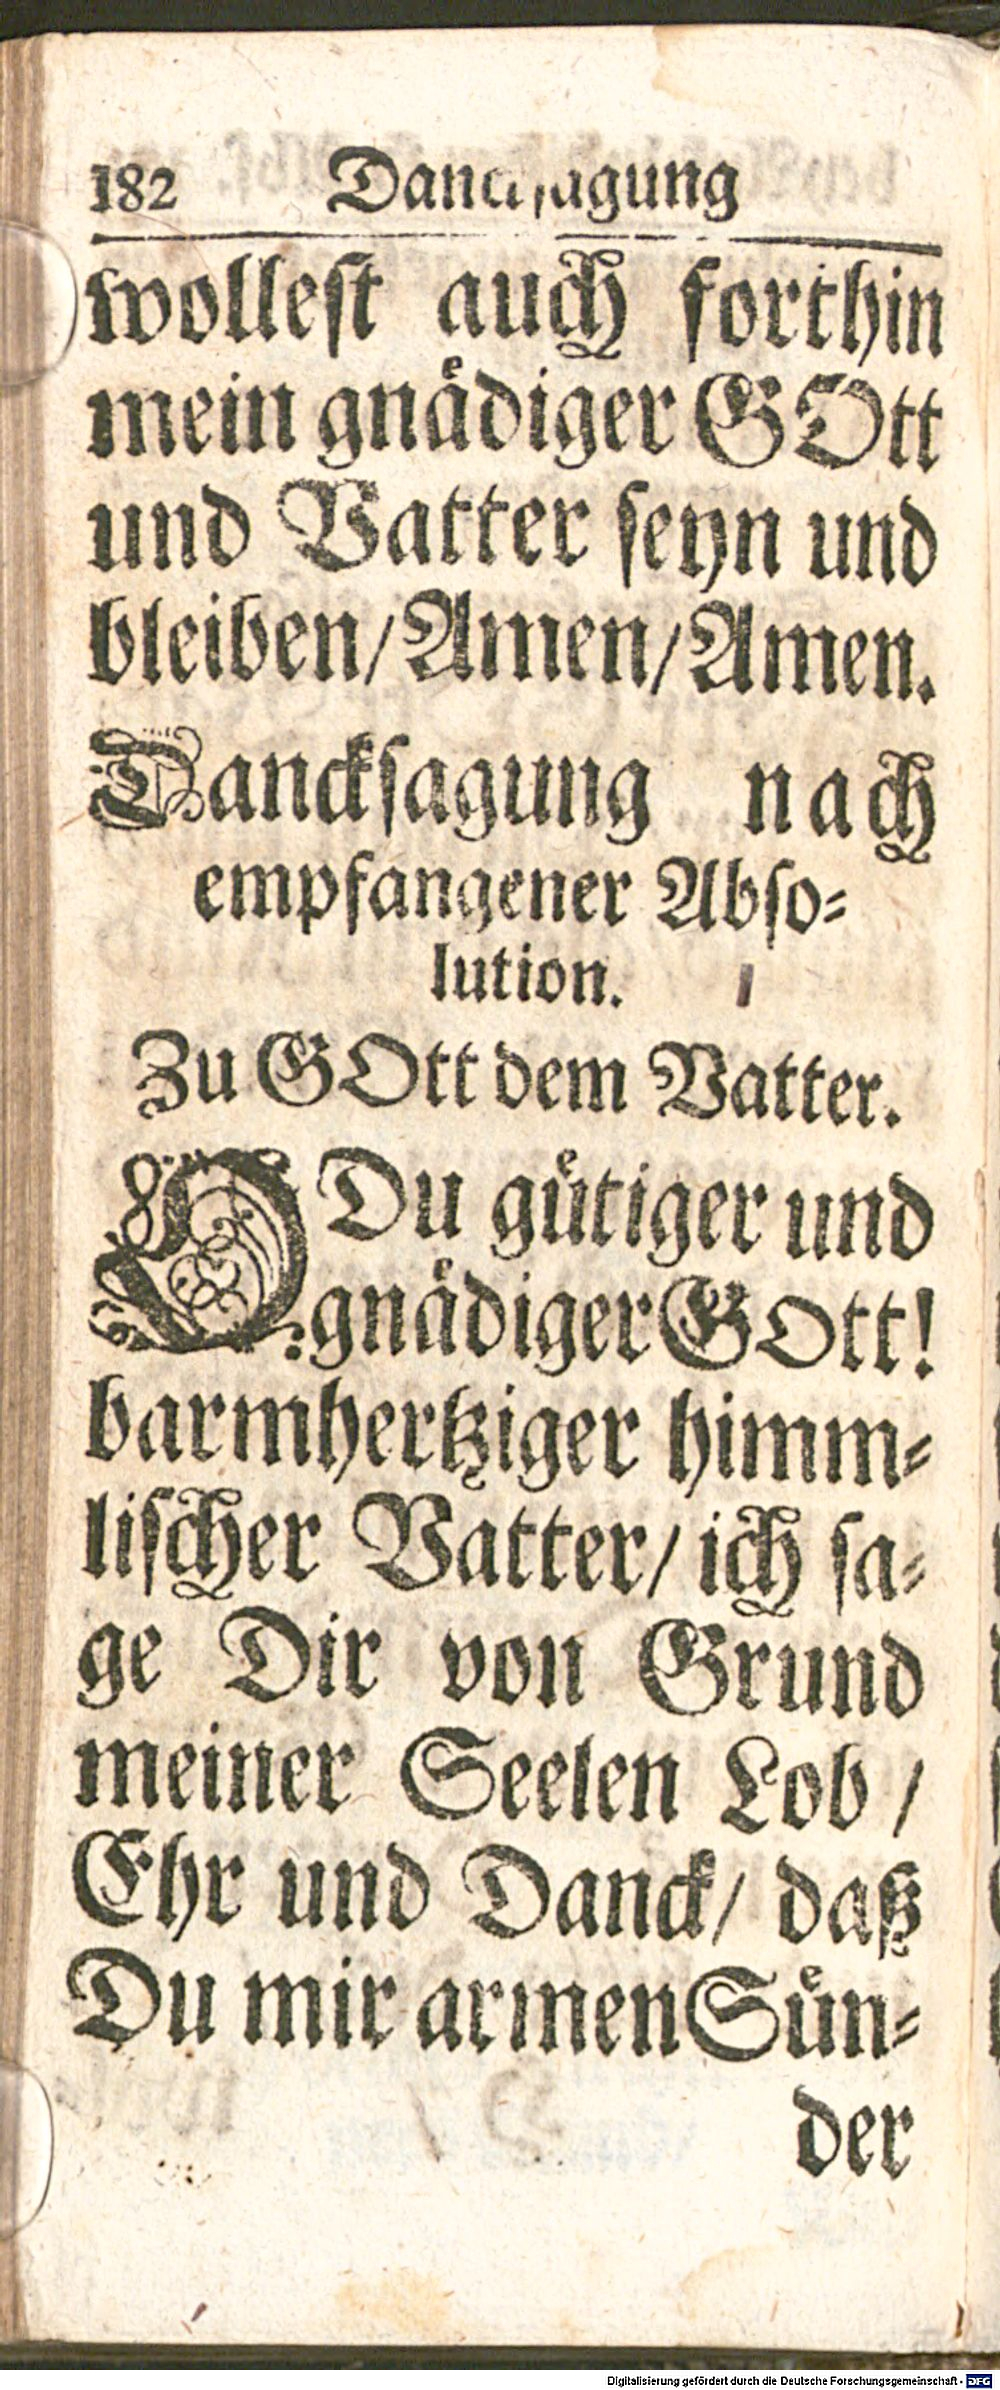 182 Danckſagung
wolleſt auch forthin
mein gnaͤdiger GOtt
und Vatter ſeyn und
bleiben/ Amen/ Amen.
Danckſagung nach
empfangener Abſo-
lution.
Zu GOtt dem Vatter.
O Du guͤtiger und
gnaͤdiger GOtt!
barmhertziger himm-
liſcher Vatter/ ich ſa-
ge Dir von Grund
meiner Seelen Lob /
Ehr und Danck/ daß
Du mir armen Suͤn-
der
Digitalisierung gefördert durch die Deutsche Forschungsgemeinschaft - DFG